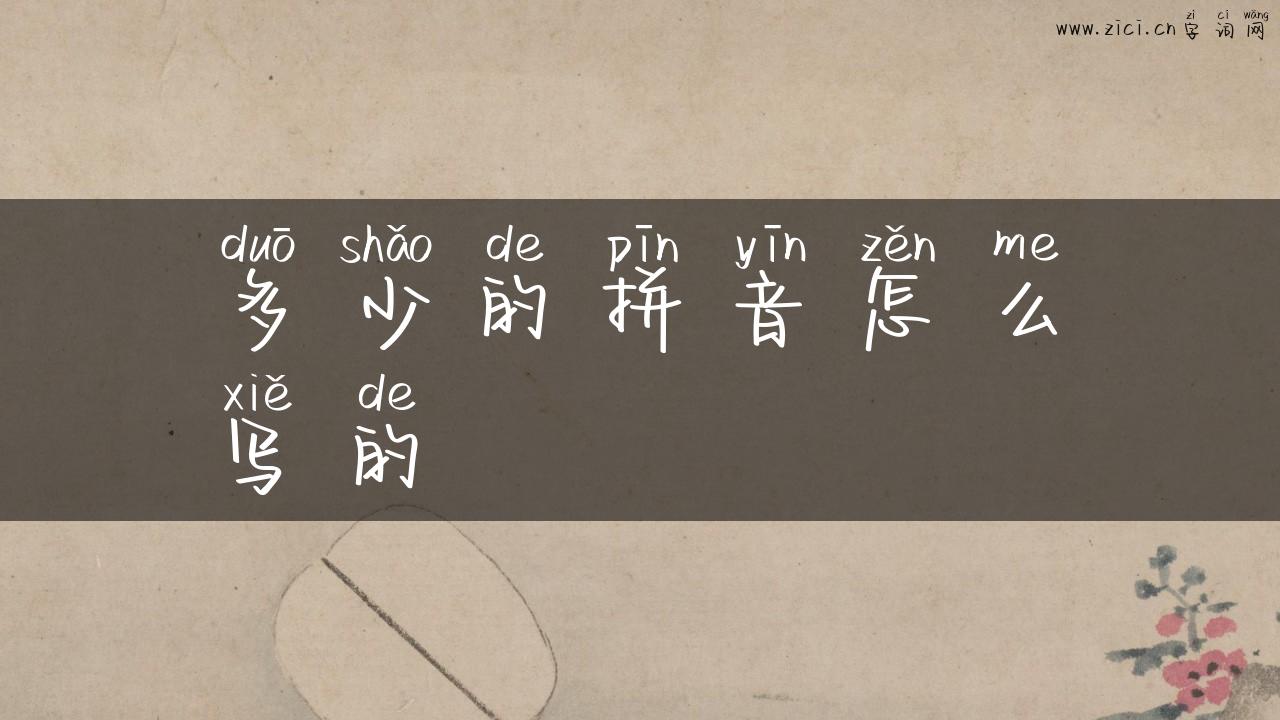 zì cí wǎng
www.zici.cn 字 词 网
duō shǎo de pīn yīn zěn me
多 少 的 拼 音 怎 么
xiě de
写 的